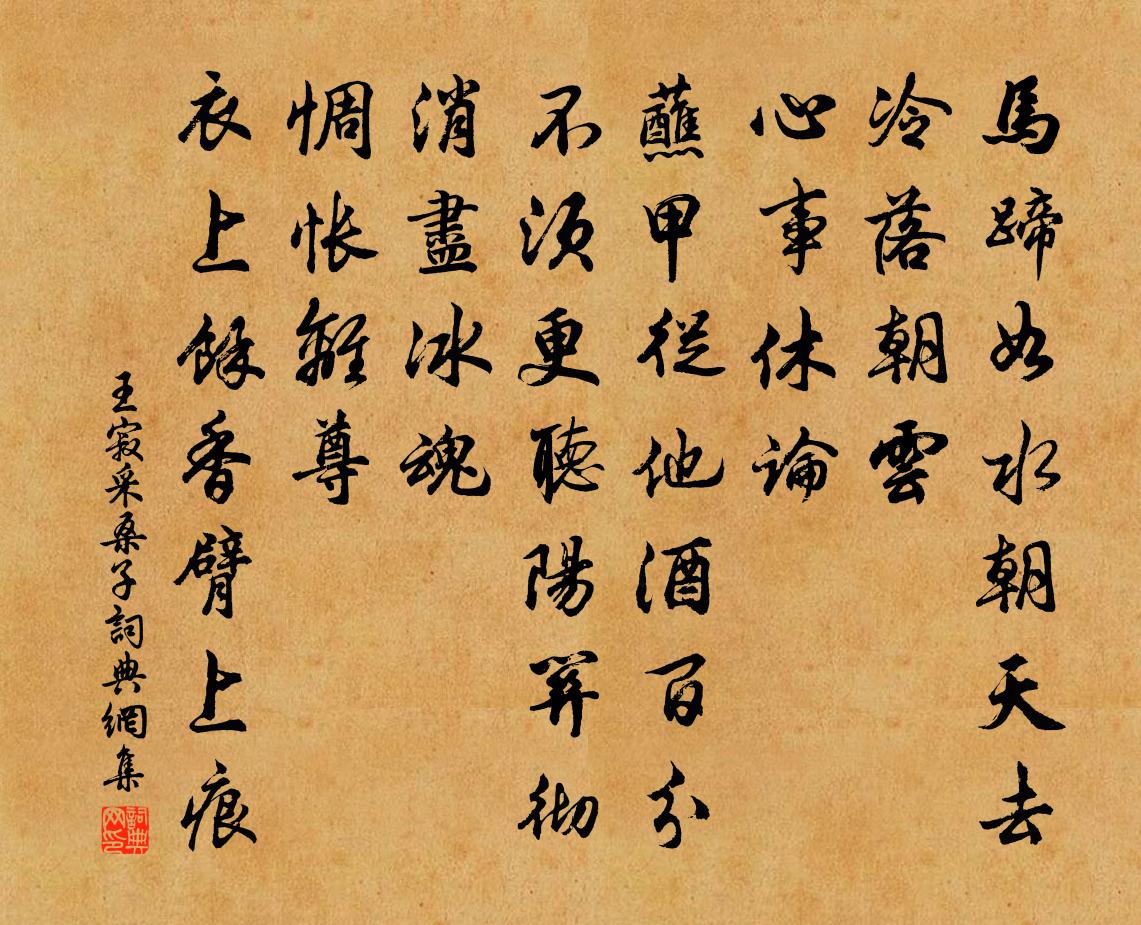 馬蹄如水朝天去
冷落朝雲
心事休論
蘸甲從他酒百分
不須更聽陽關徹
消盡冰魂
惆悵離尊
衣上餘香臂上痕
王寂采桑子詞典網集
詞典网印